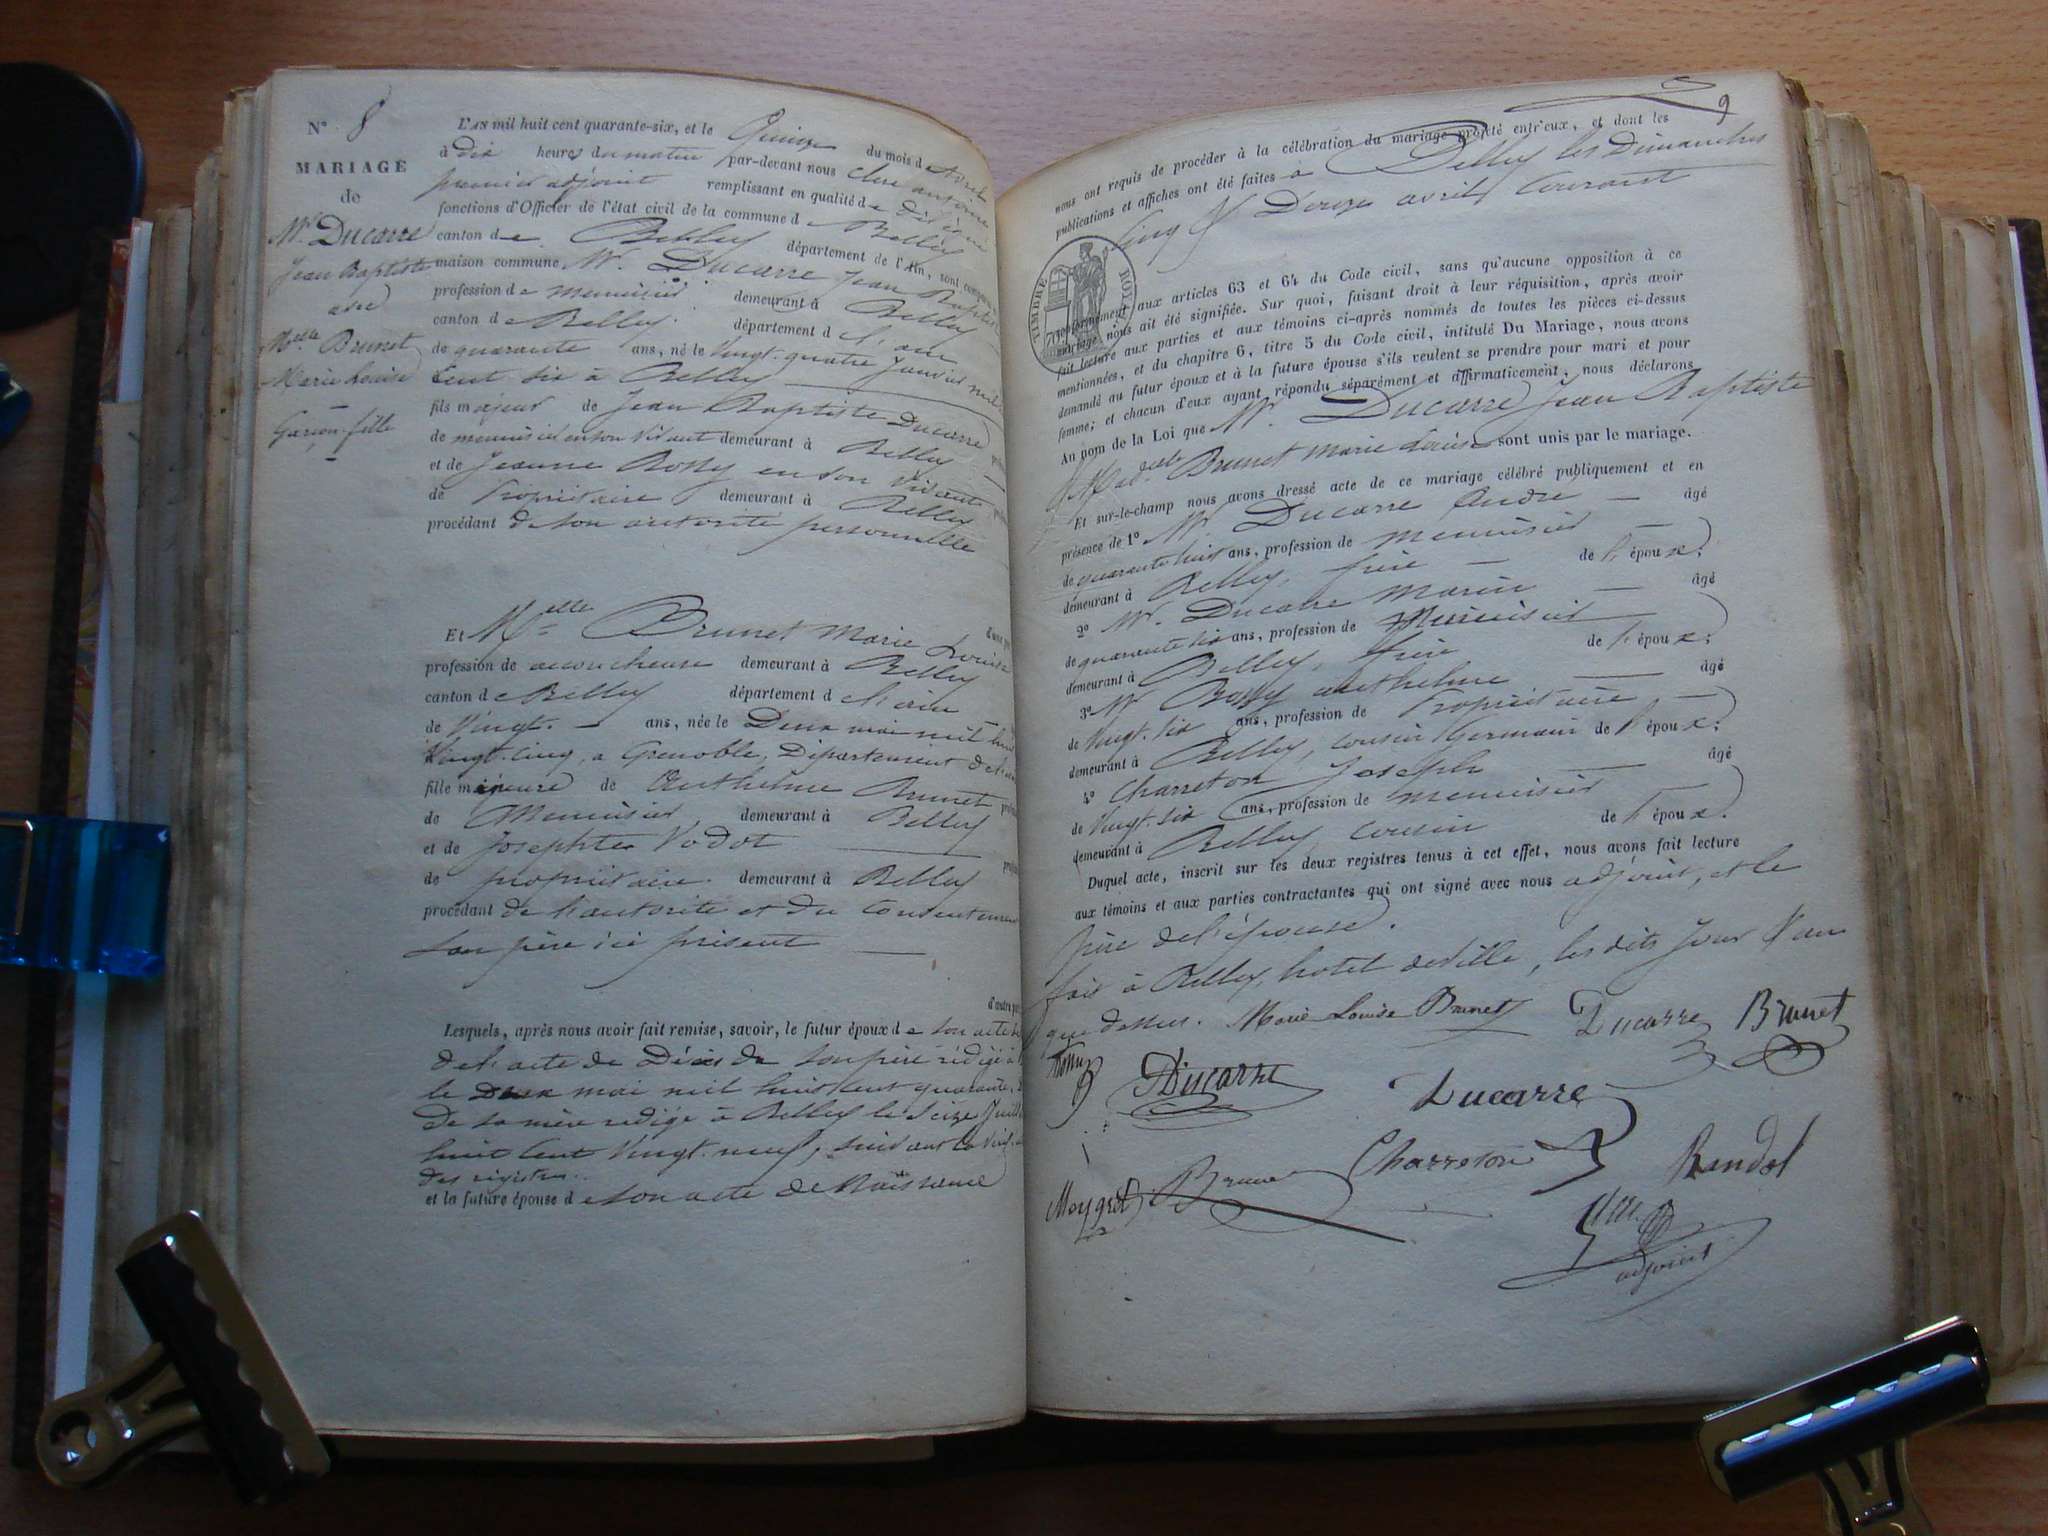 N° 8
MARIAGE
de
Mr. Ducarre
Jean Baptiste
avec
Melle Brunet
Marie Louise
Garçon-fille
L'AN mil huit cent quarante-six, et le Quinze du mois d'avril
à dix heures du matin par-devant nous
premier adjoint remplissant en qualité de
fonctions d'Officier de l'état civil de la commune de Belley
canton de Belley département de l'Ain, sont comparus
maison commune Mr. Ducarre Jean Baptiste
profession de menuisier demeurant à Belley
canton de Belley département de l'ain
de quarante ans, né le Vingt-quatre Janvier mil
cent six à Belley
fils majeur de Jean Baptiste Ducarre
de menuisier en son vivant demeurant à Belley
et de Jeanne Rossy en son vivante
de Propriétaire demeurant à Belley
procédant de son autorité personnelle
d'une part
Et Melle Brunet Marie Louise
profession de accoucheuse demeurant à Belley
canton de Belley département de l'ain
de Vingt ans, née le Deux mai mil huit
Vingt-cinq, a Grenoble, Département de
fille majeure de Anthelme Brunet
de Menuisier demeurant à Belley
et de Josephte Vodot
de propriétaire demeurant à Belley
procédant de l'autorité et du consentement
son père ici présent
d'autre part
Lesquels, après nous avoir fait remise, savoir, le futur époux de son acte de
de l'acte de Décès de son père rédigé à
le Deux mai mil huit cent quarante,
de sa mère rédigé à Belley le Seize Juillet
huit cent Vingt-neuf, suivant
des registres.
et la future épouse de son acte de Naissance
9
nous ont requis de procéder à la célébration du mariage projeté entr'eux, et dont les
publications et affiches ont été faites à Belley les Dimanches
cinq & Douze avril Courant
TIMBRE ROYAL
conformément aux articles 63 et 64 du Code civil, sans qu'aucune opposition à ce
mariage nous ait été signifiée. Sur quoi, faisant droit à leur réquisition, après avoir
fait lecture aux parties et aux témoins ci-après nommés de toutes les pièces ci-dessus
mentionnées, et du chapitre 6, titre 5 du Code civil, intitulé Du Mariage, nous avons
demandé au futur époux et à la future épouse s'ils veulent se prendre pour mari et pour
femme; et chacun d'eux ayant répondu séparément et affirmativement, nous déclarons
Au nom de la Loi que Mr. Ducarre Jean Baptiste
& Mad.elle Brunet Marie Louise sont unis par le mariage.
Et sur-le-champ nous avons dressé acte de ce mariage célébré publiquement et en
présence de 1° Mr. Ducarre André âgé
de quarante huit ans, profession de menuisier
demeurant à Belley, frère de l'époux.
2° Mr. Ducarre Marin âgé
de quarante six ans, profession de Menuisier
demeurant à Belley, frère de l'époux.
3° Mr Rossy anthelme âgé
de Vingt-six ans, profession de Propriétaire
demeurant à Belley, cousin Germain de l'époux.
4° Charreton Joseph âgé
de Vingt-six ans, profession de menuisier
demeurant à Belley cousin de l'époux.
Duquel acte, inscrit sur les deux registres tenus à cet effet, nous avons fait lecture
aux témoins et aux parties contractantes qui ont signé avec nous adjoint, et le
père de l'épouse.
fait à Belley, hotel de ville, les dits Jour & an
que dessus. Marie Louise Brunet Ducarre Brunet
Ducarre Ducarre
Charreton
adjoint